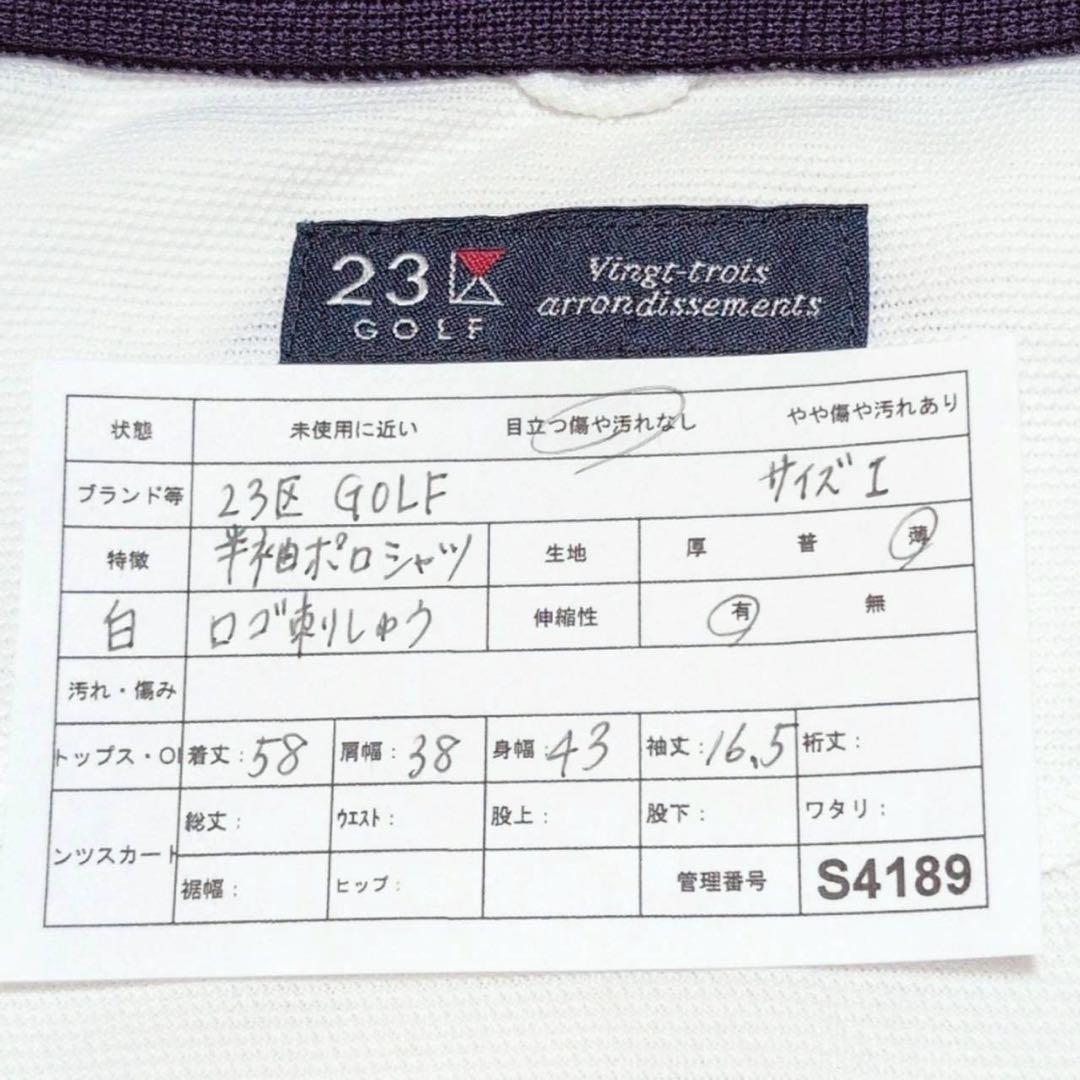 23区 Vingt-trois
GOLF arrondissements
状態 未使用に近い 目立つ傷や汚れなし やや傷や汚れあり
ブランド等 23区 GOLF サイズ I
特徴 半袖ポロシャツ 生地 厚 普 薄
白 ロゴ刺しゅう 伸縮性 有 無
汚れ・傷み
トップス・Ol 着丈:58 肩幅:38 身幅:43 袖丈:16.5 裄丈:
総丈: ウエスト: 股上: 股下: ワタリ:
ンツスカート
裾幅: ヒップ: 管理番号 S4189